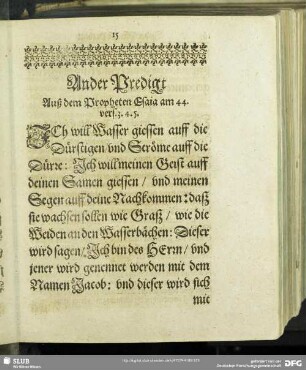 15
Ander Predigt
Auß dem Propheten Esaia am 44.
vers. 3. 4. 5.
ICh will Wasser giessen auff die
Dürstigen vnd Ströme auff die
Dürre: Ich will meinen Geist auff
deinen Samen giessen / vnd meinen
Segen auff deine Nachkommen: daß
sie wachsen sollen wie Graß / wie die
Weiden an den Wasserbächen: Dieser
wird sagen / Ich bin des HErrn / vnd
jener wird genennet werden mit dem
Namen Jacob: vnd dieser wird sich
mit
SLUB
Wir führen Wissen.
DFG